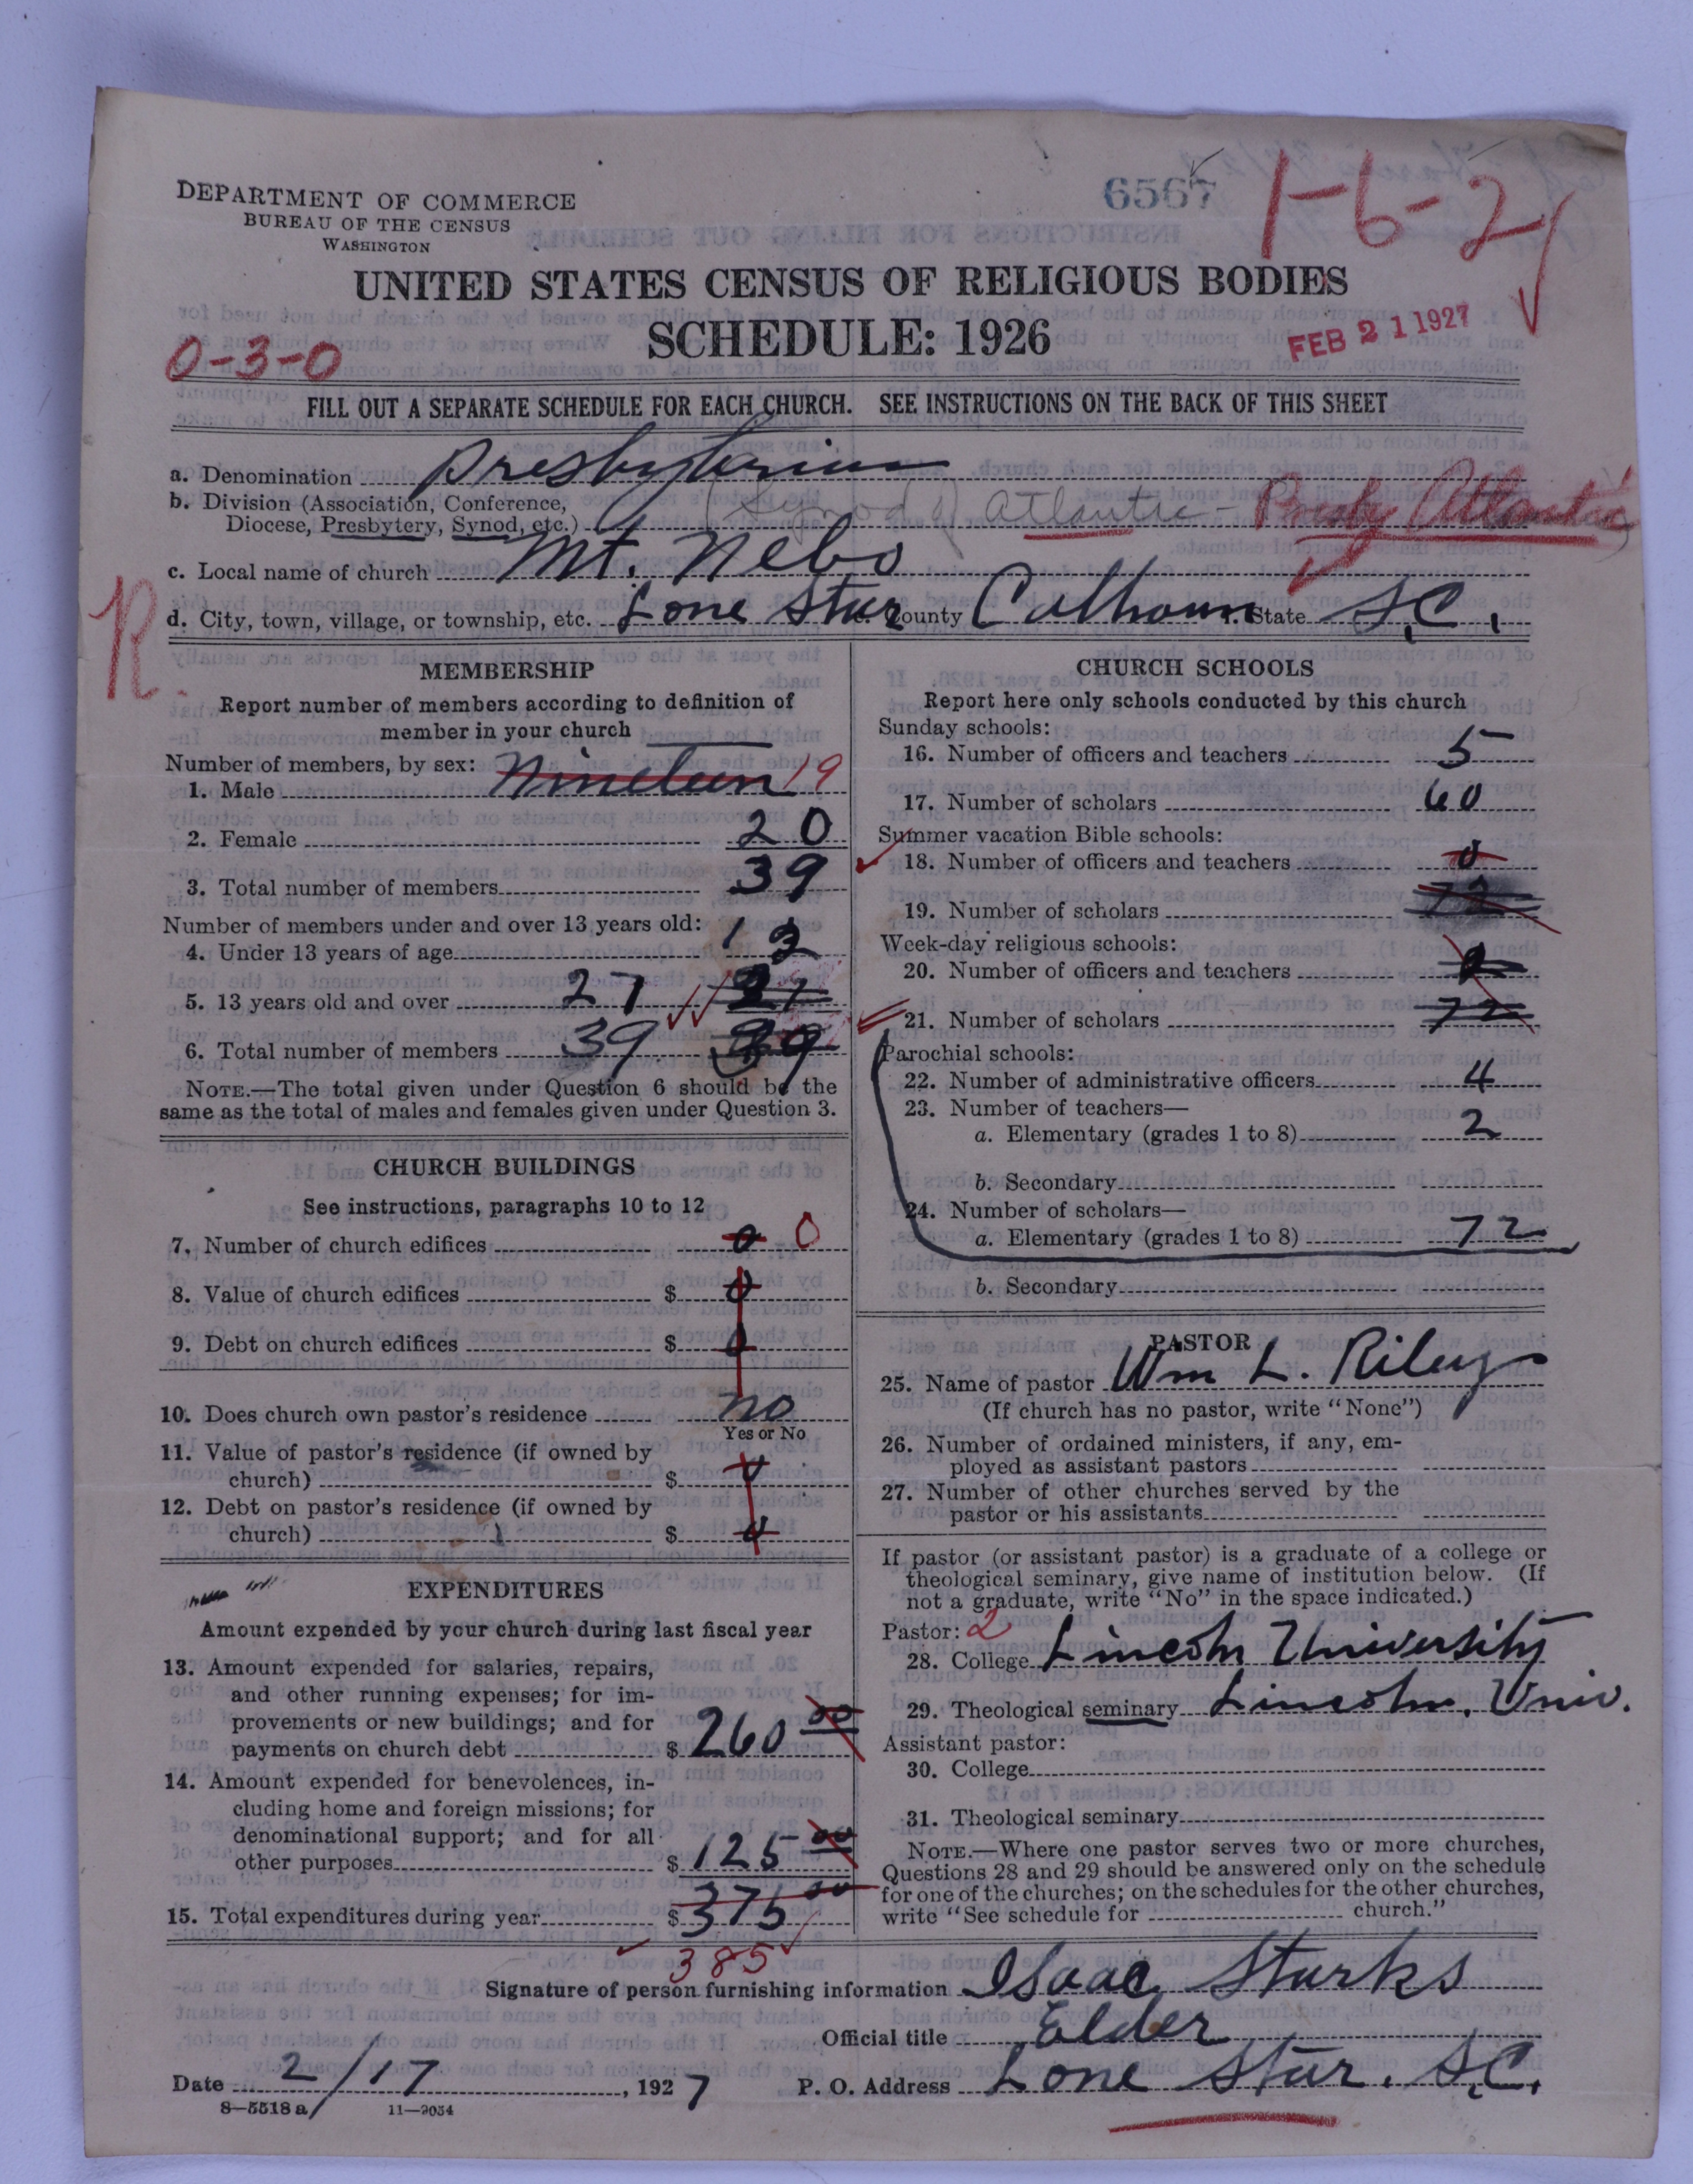 6567
1-6-2
DEPARTMENT OF COMMERCE
BUREAU OF THE CENSUS
WASHINGTON
UNITED STATES CENSUS OF RELIGIOUS BODIES
SCHEDULE: 1926
FEB 21 1927
0-3-0
FILL OUT A SEPARATE SCHEDULE FOR EACH CHURCH. SEE INSTRUCTIONS ON THE BACK OF THIS SHEET
a. Denomination Presbyterian
b. Division (Association, Conference,
Diocese, Presbytery, Synod, etc.) (Synod of) Atlantic - Presby Atlantic
c. Local name of church Mt. Nebo
R.
d. City, town, village, or township, etc. Lone Star County Calhoun State S.C.
MEMBERSHIP
Report number of members according to definition of
member in your church
Number of members, by sex:
1. Male Nineteen 19
2. Female 20
3. Total number of members 39
Number of members under and over 13 years old:
4. Under 13 years of age 12
5. 13 years old and over 27 27
6. Total number of members 39 39
NOTE.—The total given under Question 6 should be the
same as the total of males and females given under Question 3.
CHURCH BUILDINGS
See instructions, paragraphs 10 to 12
7. Number of church edifices 0 0
8. Value of church edifices $ 0
9. Debt on church edifices $ 0
10. Does church own pastor's residence no
Yes or No
11. Value of pastor's residence (if owned by
church) $ 0
12. Debt on pastor's residence (if owned by
church) $ 0
EXPENDITURES
Amount expended by your church during last fiscal year
13. Amount expended for salaries, repairs,
and other running expenses; for im-
provements or new buildings; and for
payments on church debt $ 260 00
14. Amount expended for benevolences, in-
cluding home and foreign missions; for
denominational support; and for all
other purposes $ 125 00
15. Total expenditures during year $ 375 00
385
CHURCH SCHOOLS
Report here only schools conducted by this church
Sunday schools:
16. Number of officers and teachers 5
17. Number of scholars 60
Summer vacation Bible schools:
18. Number of officers and teachers 0
19. Number of scholars 72
Week-day religious schools:
20. Number of officers and teachers 2
21. Number of scholars 72
Parochial schools:
22. Number of administrative officers 4
23. Number of teachers—
a. Elementary (grades 1 to 8) 2
b. Secondary
24. Number of scholars—
a. Elementary (grades 1 to 8) 72
b. Secondary
PASTOR
25. Name of pastor Wm L. Riley
(If church has no pastor, write "None")
26. Number of ordained ministers, if any, em-
ployed as assistant pastors
27. Number of other churches served by the
pastor or his assistants
If pastor (or assistant pastor) is a graduate of a college or
theological seminary, give name of institution below. (If
not a graduate, write "No" in the space indicated.)
Pastor: 2
28. College Lincoln University
29. Theological seminary Lincoln, Univ.
Assistant pastor:
30. College
31. Theological seminary
NOTE.—Where one pastor serves two or more churches,
Questions 28 and 29 should be answered only on the schedule
for one of the churches; on the schedules for the other churches,
write "See schedule for church."
Signature of person furnishing information Isaac Starks
Official title Elder
Date 2/17, 1927 P. O. Address Lone Star. S.C.
8-5518a 11-9054